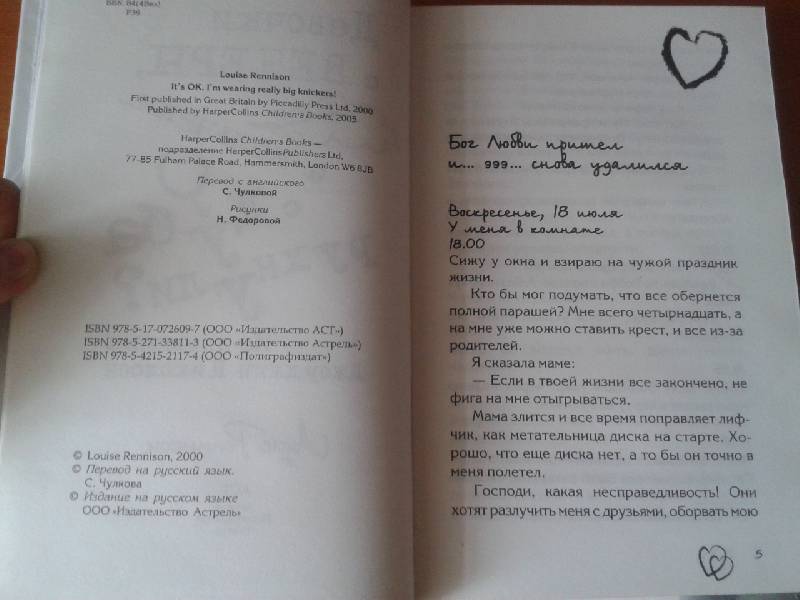 ББК 84(4Вел)
Р39
Louise Rennison
It's OK, I'm wearing really big knickers!
First published in Great Britain by Piccadilly Press Ltd, 2000
Published by HarperCollins Children's Books, 2005
HarperCollins Children's Books —
подразделение HarperCollinsPublishers Ltd,
77-85 Fulham Palace Road, Hammersmith, London W6 8JB
Перевод с английского
С. Чулковой
Рисунки
Н. Федоровой
ISBN 978-5-17-072609-7 (ООО «Издательство АСТ»)
ISBN 978-5-271-33811-3 (ООО «Издательство Астрель»)
ISBN 978-5-4215-2117-4 (ООО «Полиграфиздат»)
© Louise Rennison, 2000
© Перевод на русский язык.
С. Чулкова
© Издание на русском языке
ООО «Издательство Астрель»
Бог Любви пришел
и... эээ... снова удалился
Воскресенье, 18 июля
У меня в комнате
18.00
Сижу у окна и взираю на чужой праздник
жизни.
Кто бы мог подумать, что все обернется
полной парашей? Мне всего четырнадцать, а
на мне уже можно ставить крест, и все из-за
родителей.
Я сказала маме:
— Если в твоей жизни все закончено, не
фига на мне отыгрываться.
Мама злится и все время поправляет лиф-
чик, как метательница диска на старте. Хо-
рошо, что еще диска нет, а то бы он точно в
меня полетел.
Господи, какая несправедливость! Они
хотят разлучить меня с друзьями, оборвать мою
5